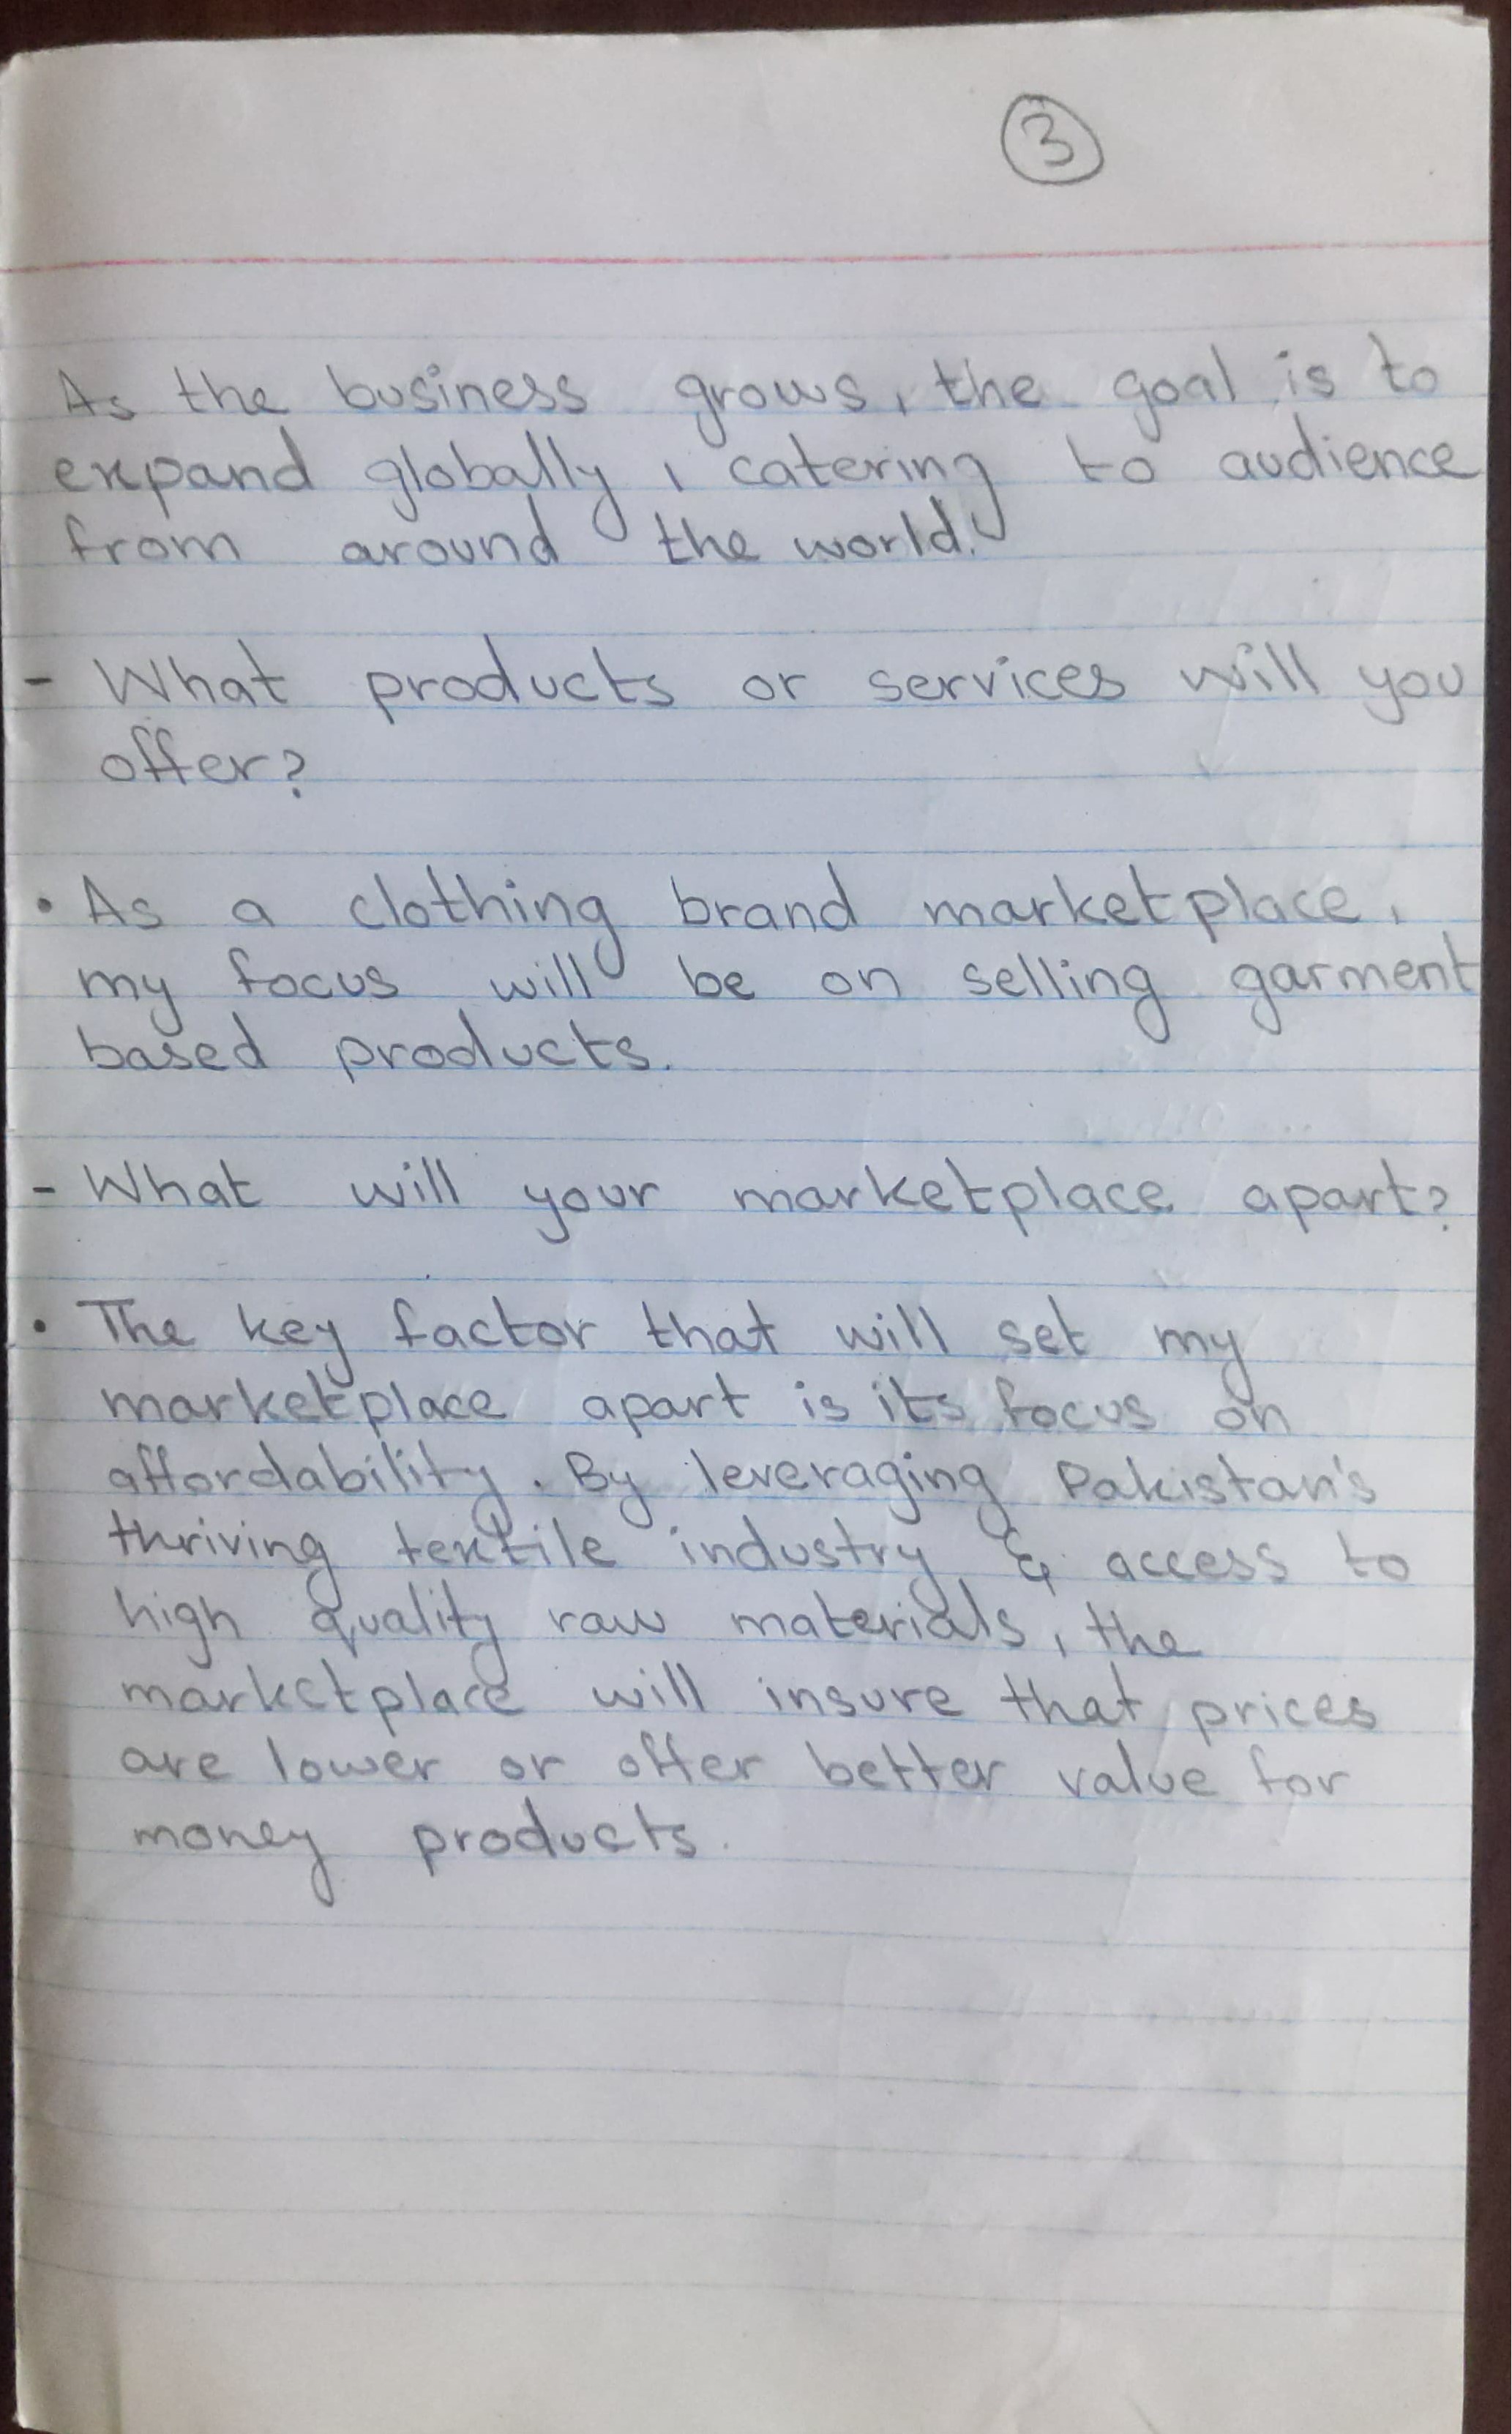 3
As the business grows, the goal is to
expand globally, catering to audience
from around the world.
- What products or services will you
offer?
• As a clothing brand marketplace,
my focus will be on selling garment
based products.
- What will your marketplace apart?
• The key factor that will set my
marketplace apart is its focus on
affordability. By leveraging Pakistan's
thriving textile industry & access to
high quality raw materials, the
marketplace will insure that prices
are lower or offer better value for
money products.